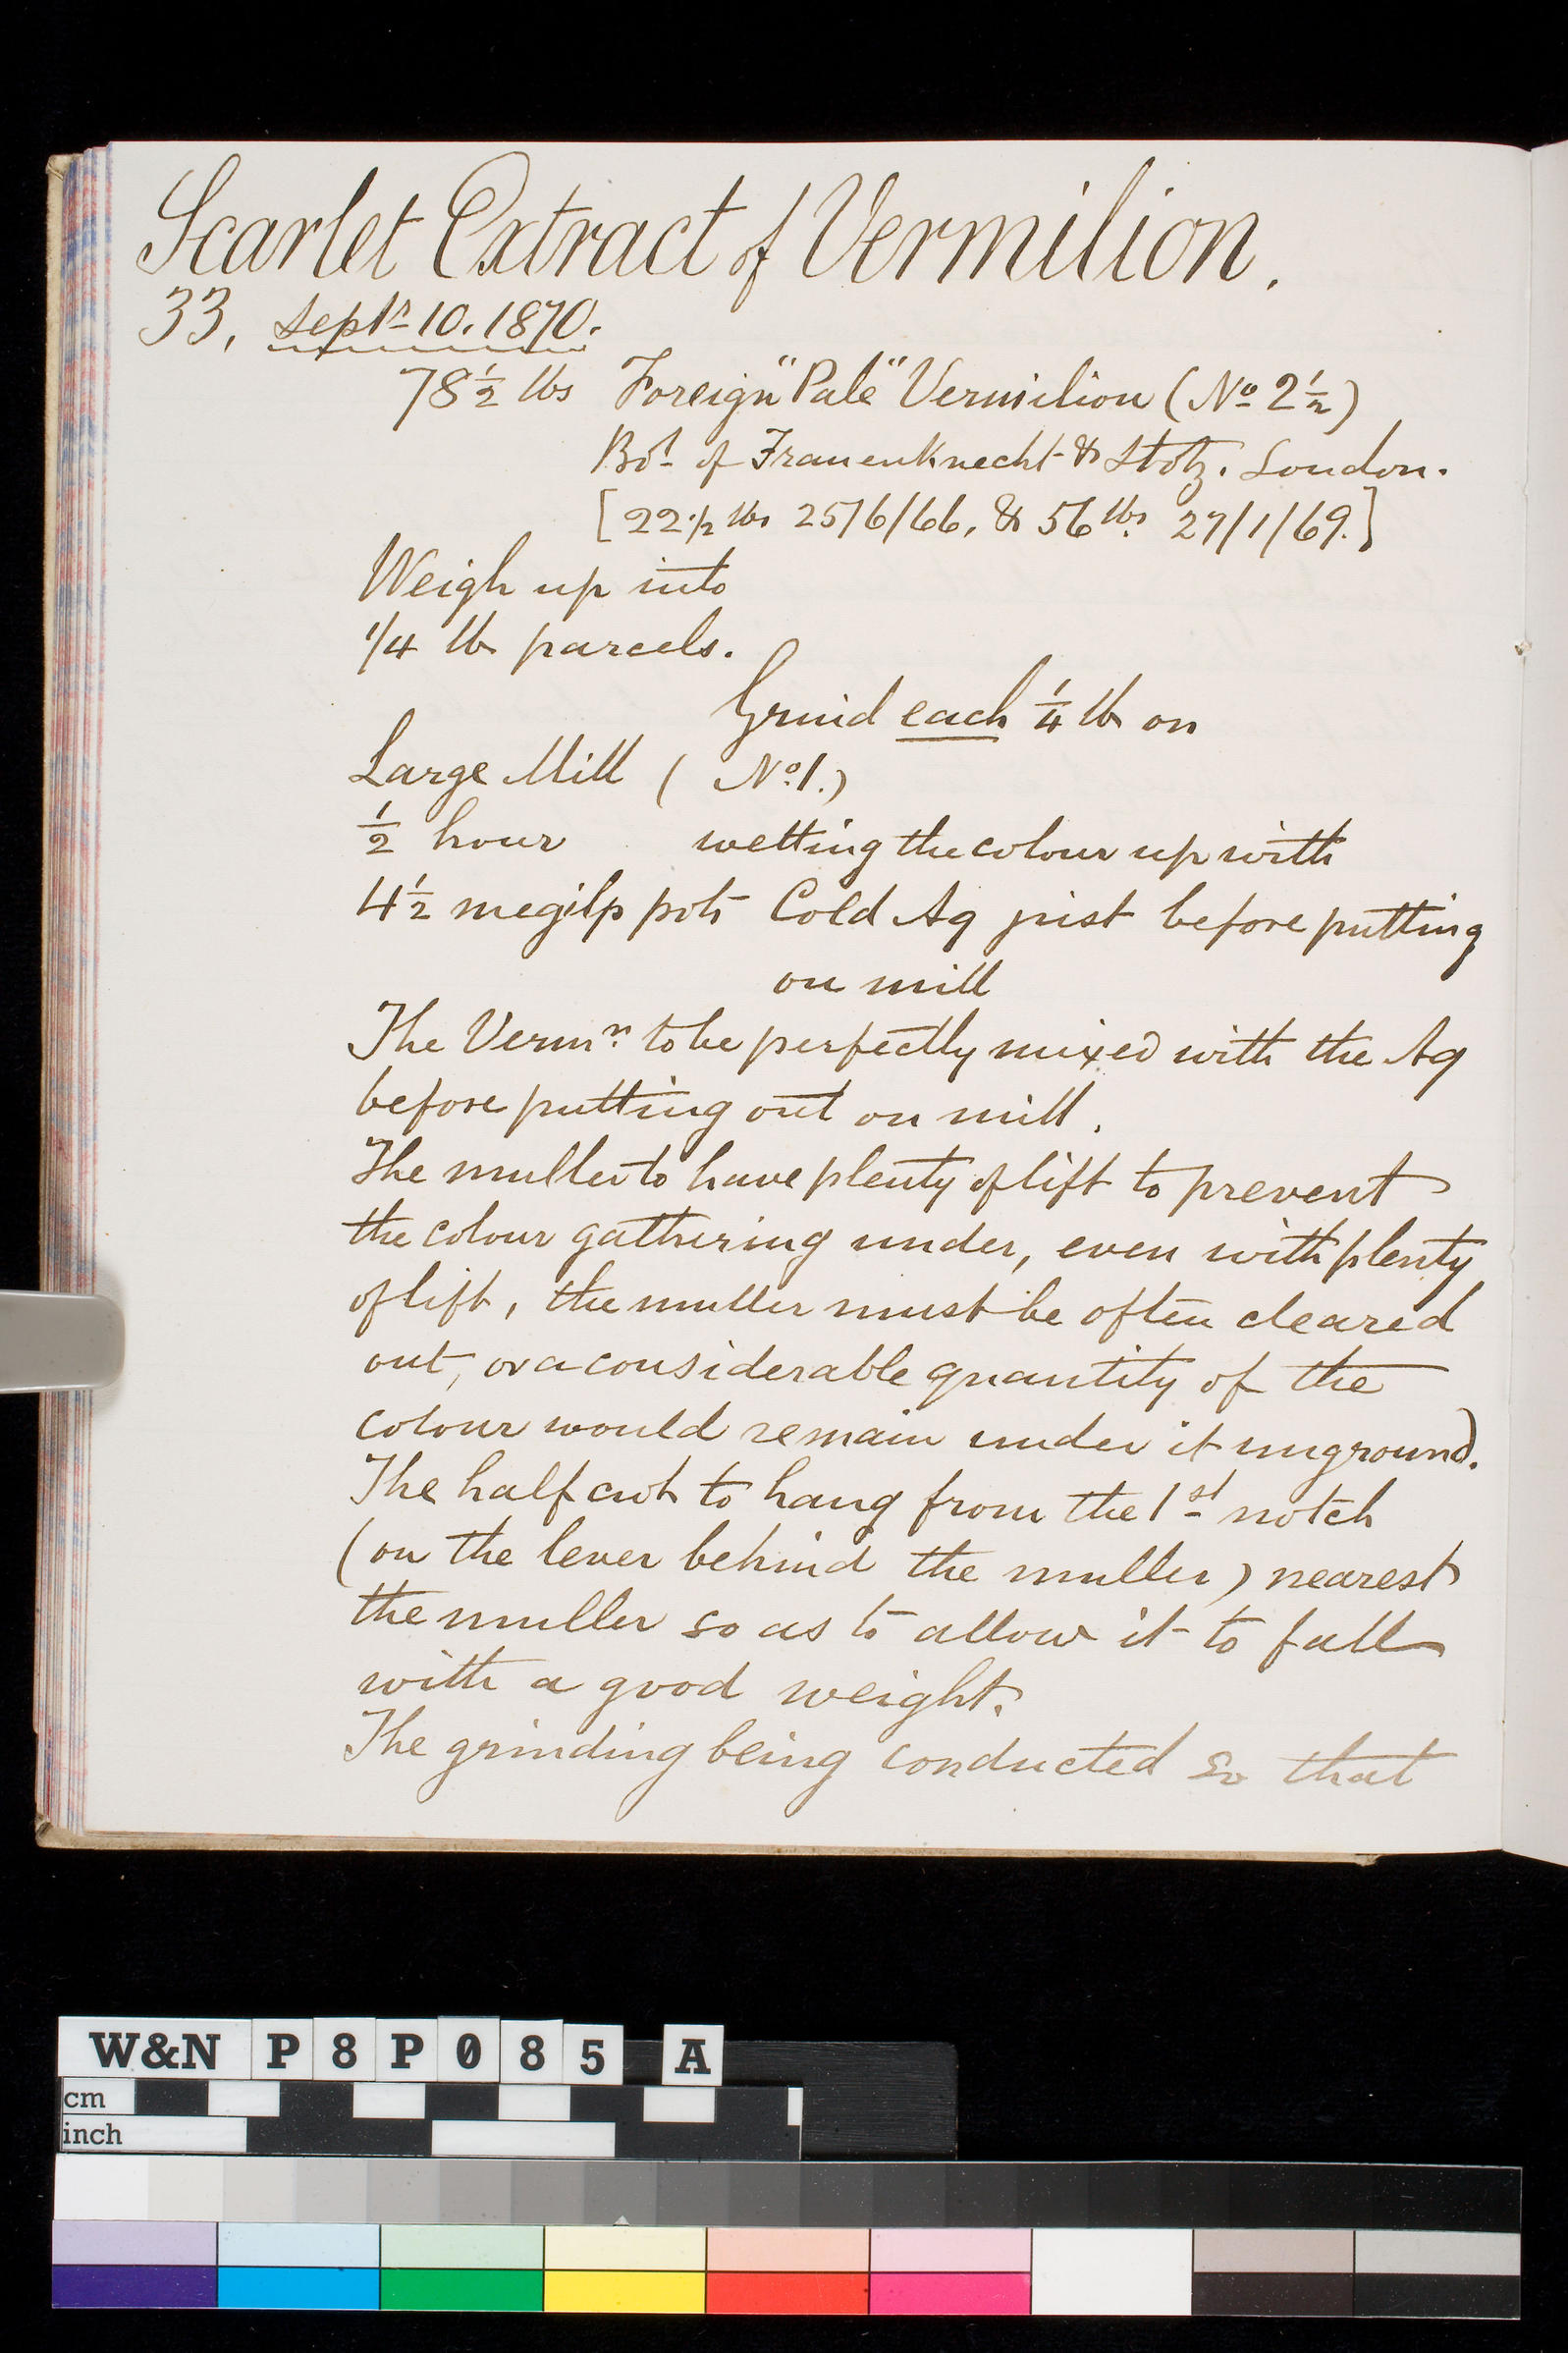 Scarlet Extract of Vermilion.
33, Septr 10. 1870.
78½ lbs Foreign "Pale" Vermilion (No 2½)
Bot of Frauenknecht & Stotz. London.
[22½ lbs 25/6/66, & 56 lbs. 27/1/69.]
Weigh up into
1/4 lb parcels.
Grind each ¼ lb on
Large Mill ( No. 1.)
½ hour wetting the colour up with
4½ megilp pots Cold Aq just before putting
on mill
The Vermn. to be perfectly mixed with the Aq
before putting out on mill.
The muller to have plenty of lift to prevent
the colour gathering under, even with plenty
of lift, the muller must be often cleared
out, or a considerable quantity of the
colour would remain under it unground.
The half cwt to hang from the 1st notch
(on the lever behind the muller) nearest
the muller so as to allow it to fall
with a good weight.
The grinding being conducted so that
W&N P8P085 A
cm
inch